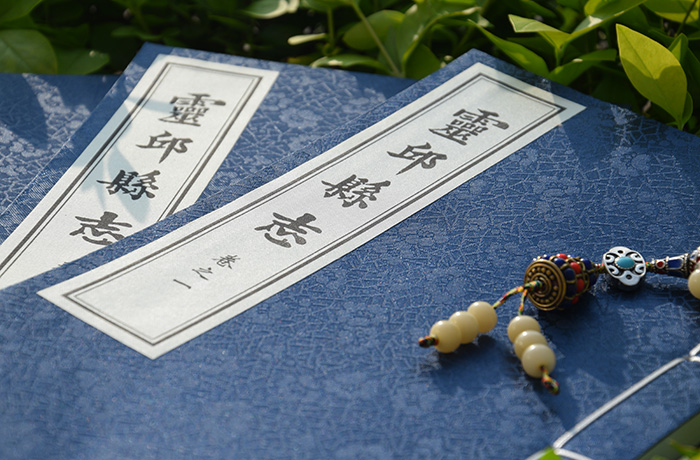 靈邱縣志
靈邱縣志
卷之一